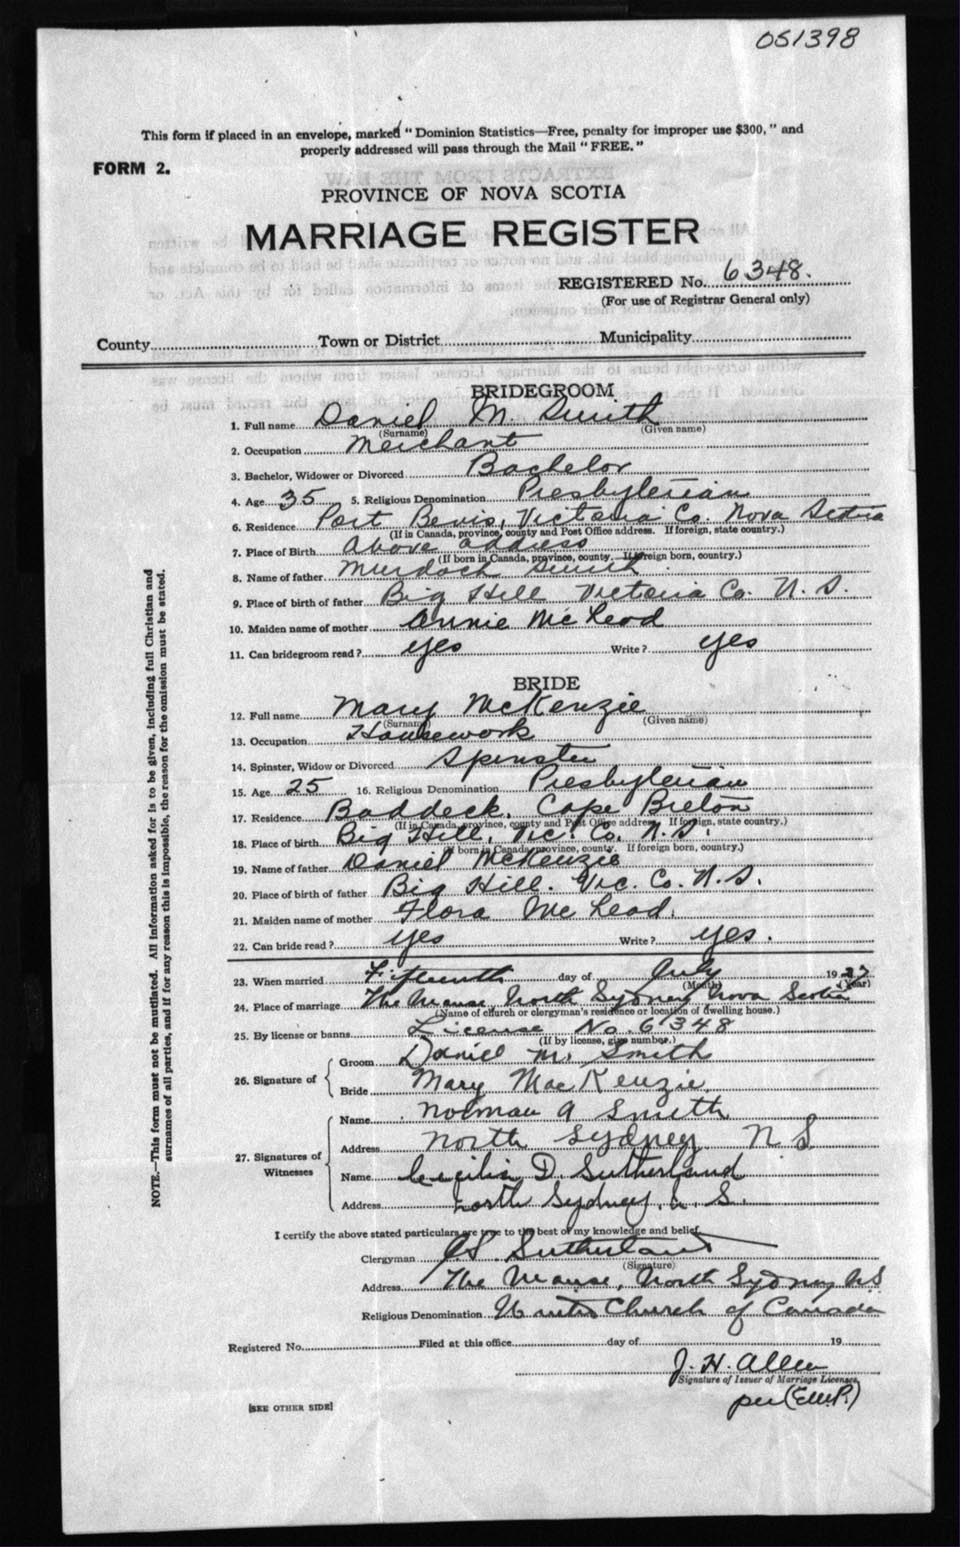 051398
This form if placed in an envelope, marked "Dominion Statistics—Free, penalty for improper use $300," and
properly addressed will pass through the Mail "FREE."
FORM 2.
PROVINCE OF NOVA SCOTIA
MARRIAGE REGISTER
REGISTERED No. 6348.
(For use of Registrar General only)
County Town or District Municipality
BRIDEGROOM
1. Full name Daniel M. Smith
(Surname) (Given name)
2. Occupation Merchant
3. Bachelor, Widower or Divorced Bachelor
4. Age 35 5. Religious Denomination Presbyterian
6. Residence Port Bevis, Victoria Co. Nova Scotia
(If in Canada, province, county and Post Office address. If foreign, state country.)
7. Place of Birth above address
(If born in Canada, province, county. If foreign born, country.)
8. Name of father Murdoch Smith
9. Place of birth of father Big Hill Victoria Co. N. S.
10. Maiden name of mother Annie McLeod
11. Can bridegroom read? yes Write? yes
BRIDE
12. Full name Mary McKenzie
(Surname) (Given name)
13. Occupation Housework
14. Spinster, Widow or Divorced Spinster
15. Age 25 16. Religious Denomination Presbyterian
17. Residence Baddeck, Cape Breton
(If in Canada, province, county and Post Office address. If foreign, state country.)
18. Place of birth Big Hill, Vic. Co. N.S.
(If born in Canada, province, county. If foreign born, country.)
19. Name of father Daniel McKenzie
20. Place of birth of father Big Hill. Vic. Co. N.S.
21. Maiden name of mother Flora McLeod.
22. Can bride read? yes Write? yes.
23. When married Fifteenth day of July 1927
(Month) (Year)
24. Place of marriage The Manse, North Sydney Nova Scotia
(Name of church or clergyman's residence or location of dwelling house.)
25. By license or banns License No. 6348
(If by license, give number.)
26. Signature of Groom Daniel M. Smith
Bride Mary MacKenzie
27. Signatures of Witnesses Name Norman A Smith
Address North Sydney N S
Name Cecilia D. Sutherland
Address North Sydney, N. S.
I certify the above stated particulars are true to the best of my knowledge and belief.
Clergyman Sutherland
(Signature)
Address The Manse, North Sydney NS
Religious Denomination United Church of Canada
Registered No. Filed at this office day of 19
J. H. Allen
Signature of Issuer of Marriage Licenses.
per (E.M.P.)
[SEE OTHER SIDE]
NOTE.—This form must not be mutilated. All information asked for is to be given, including full Christian and
surnames of all parties, and if for any reason this is impossible, the reason for the omission must be stated.